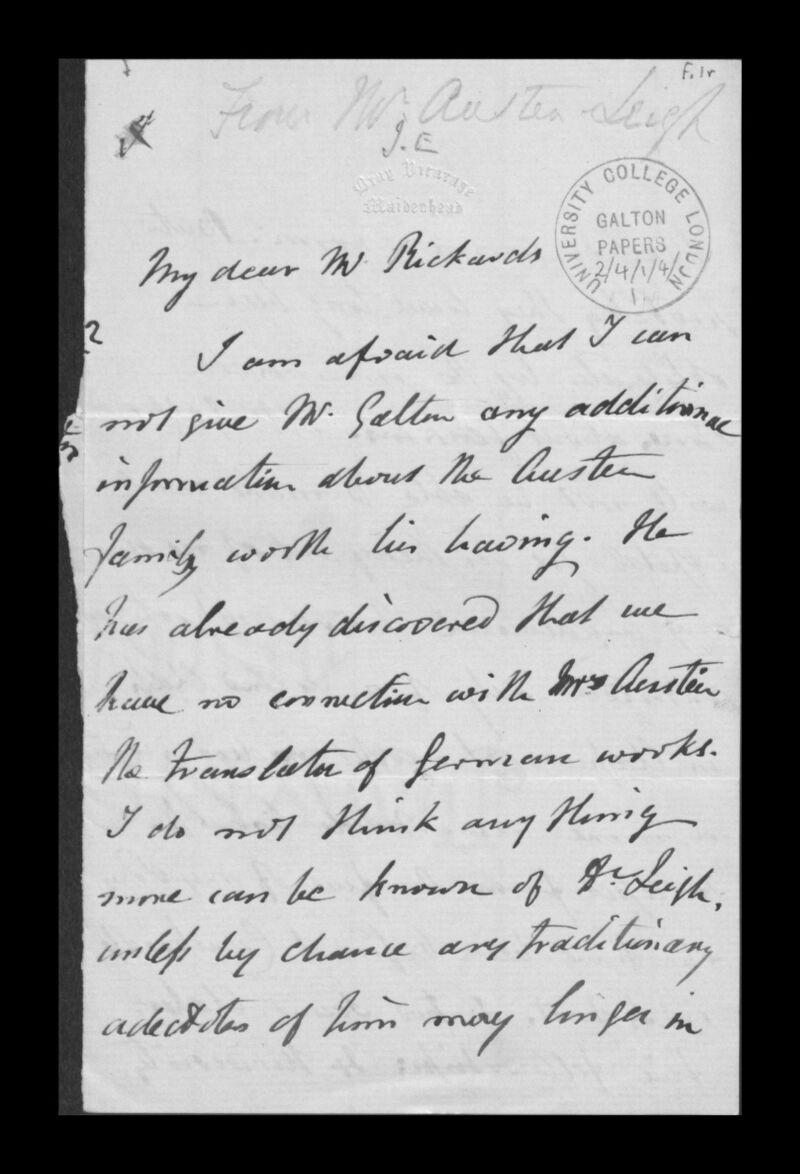 F.1r
From Mr. Austen-Leigh
J. E
Bray Vicarage
Maidenhead
UNIVERSITY COLLEGE LONDON
GALTON
PAPERS
2/4/1/4/
1
My dear Mr. Rickards
I am afraid that I can
not give Mr. Galton any additional
information about the Austen
family worth his having. He
has already discovered that we
have no connection with Mrs Austin
the translator of German works.
I do not think any thing
more can be known of Dr. Leigh,
unless by chance any traditionary
adectotes of him may linger in